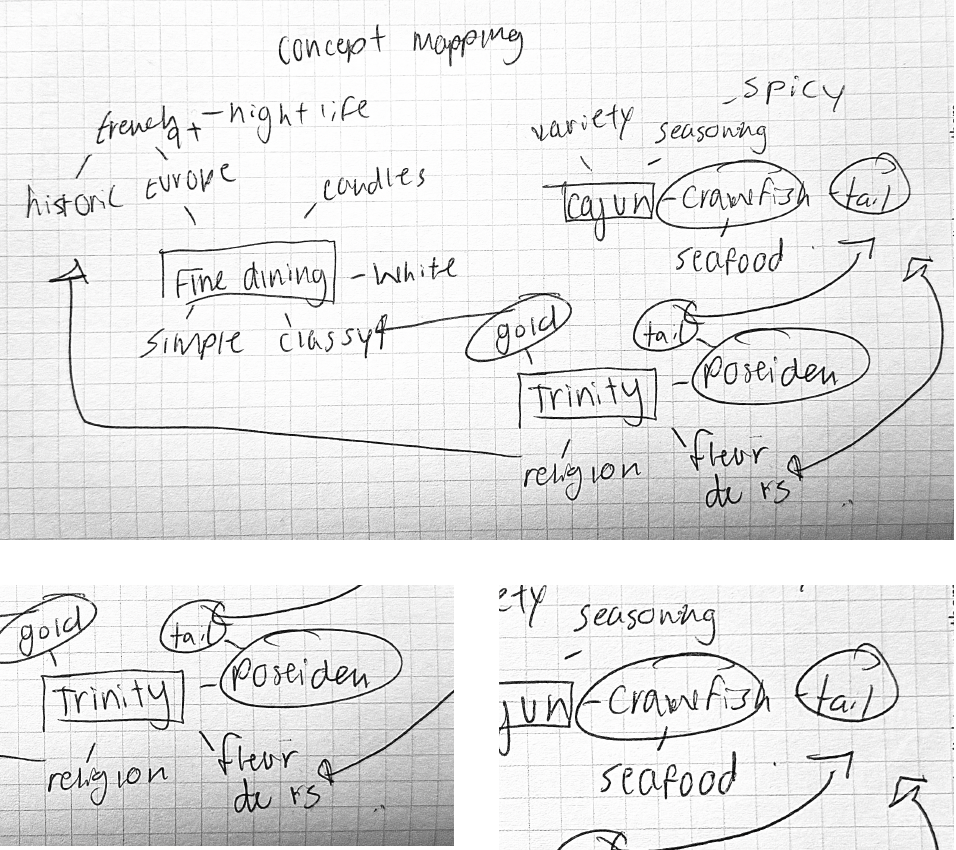 concept mapping
french qt - nightlife
historic Europe
candles
Fine dining - White
simple classy
variety
seasoning
- SPICY
cajun - crawfish - tail
seafood
gold
tail
Trinity - Poseiden
religion
fleur
de rs
gold
tail
Trinity - Poseiden
religion
fleur
de rs
ety
seasoning
jun - crawfish - tail
seafood